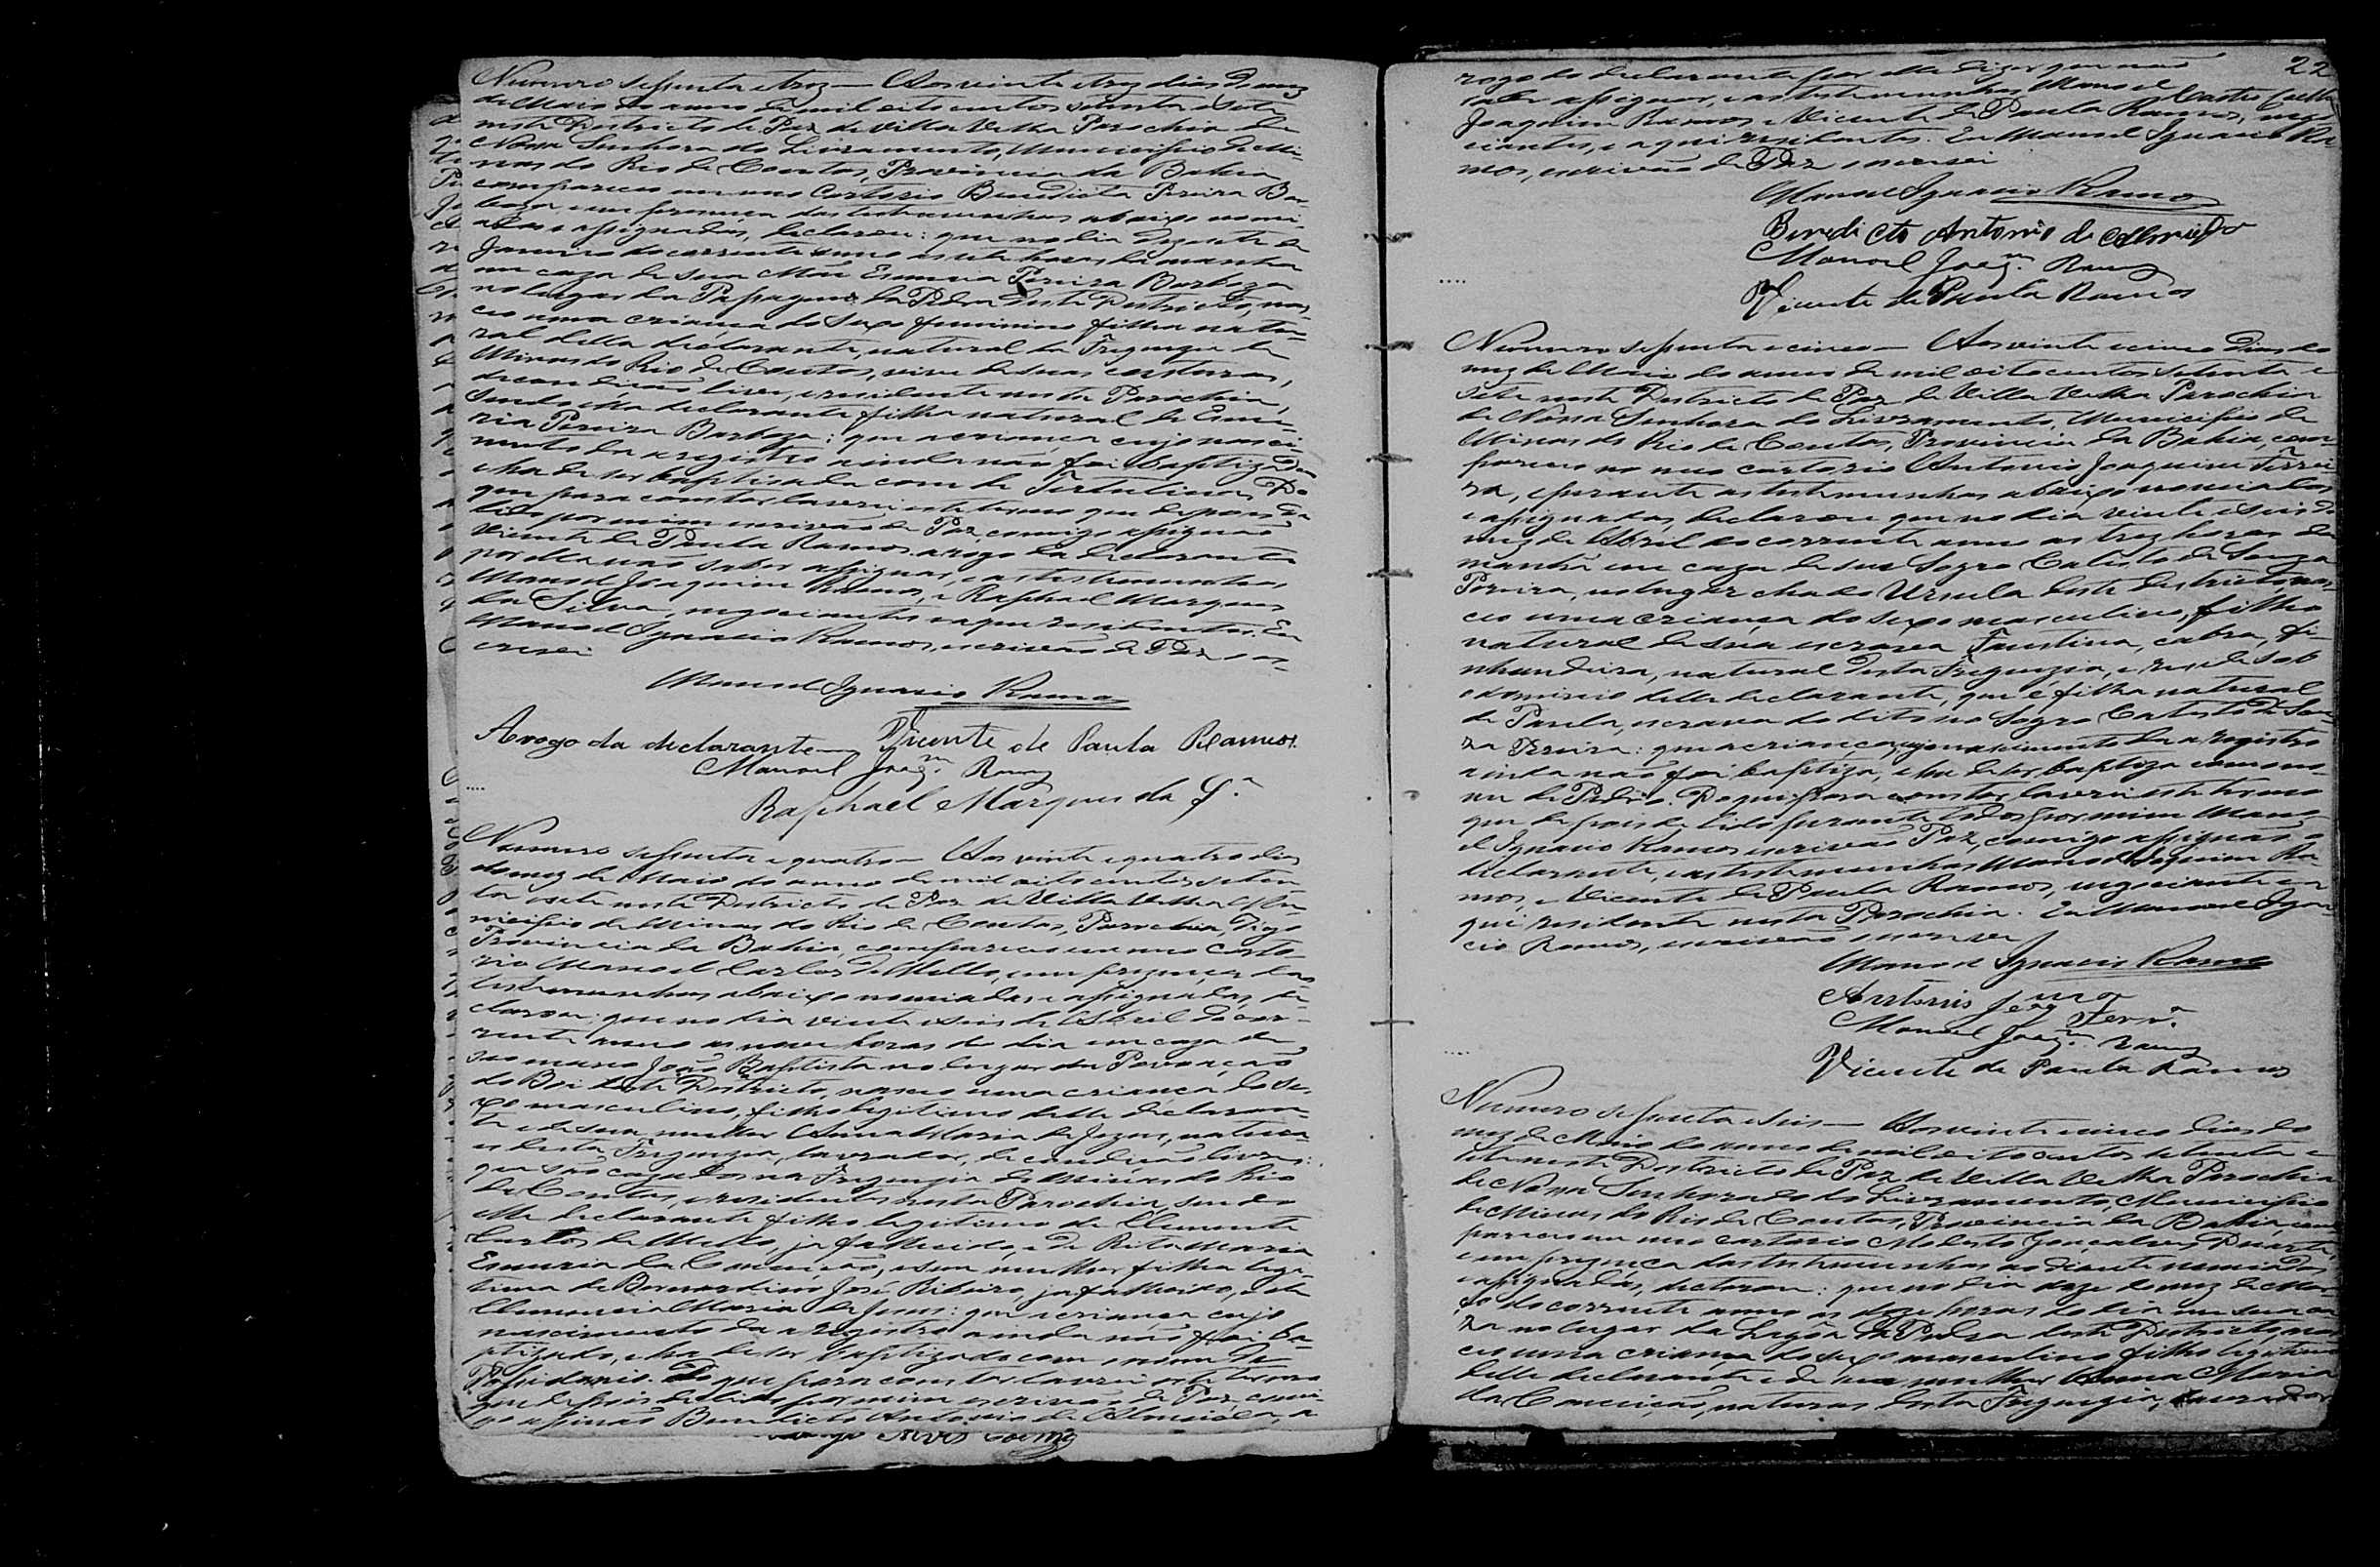 Numero sessenta e trez — Aos vinte e trez dias do mez
de Maio do anno de mil oito centos setenta e sete
neste Districto de Paz de Villa Velha Parochia de
Nossa Senhora do Livramento, Municipio de Mi-
nas do Rio de Contas, Provincia da Bahia
compareceu em meu Cartorio Benedicta Pereira Bar-
boza, e em presença das testemunhas abaixo nomi-
adas e assignadas, declarou: que no dia dezesete de
Janeiro do corrente anno as sete horas da manhã
em caza de sua Mãe Esmeria Pereira Barboza
no lugar da Passagem da Pedra deste Districto, nas-
ceo uma criança do sexo feminino filha natu-
ral della declarante, natural da Freguezia de
Minas do Rio de Contas, vive de suas costuras,
de condição livre, e residente nesta Parochia,
sendo ella declarante filha natural de Esme-
ria Pereira Barboza: que a criança cujo nasci-
mento da a registro ainda não foi baptizada
e ha de ser baptisada com de Tertulina. Do
que para constar lavrei este termo que depois de
lido por mim escrivão de Paz, comigo assignão
Vicente de Paula Ramos a rogo da declarante
por ella não saber assignar, e as testemunhas
Manoel Joaquim Ramos, e Raphael Marques
da Silva, negociantes e aqui residentes. Eu
Manoel Ignacio Ramos, escrivão de Paz o es-
crevi
Manoel Ignacio Ramos
A rogo da declarante Vicente de Paula Ramos.
Manoel Joaqm. Ramos
Raphael Marques da Sª
Numero sessenta e quatro — Aos vinte e quatro dias
do mez de Maio do anno de mil oito centos seten-
ta e sete neste Districto de Paz de Villa Velha Mu-
nicipio de Minas do Rio de Contas, Parochia, Digo
Provincia da Bahia, compareceo em meu Carto-
rio Manoel Carlos de Mello, e em presença das
testemunhas abaixo nomiadas e assignadas, de-
clarou: que no dia vinte e seis de Abril do cor-
rente anno as nove horas do dia em caza de
seo mano João Baptista no lugar da Povoação
do Boi deste Districto, nasceo uma criança do se-
xo masculino, filho legitimo delle declaran-
te e de sua mulher Anna Maria de Jezus, natura-
es desta Freguezia, lavrador, de condição livres:
que são cazados na Freguezia de Minas do Rio
de Contas, e residentes nesta Parochia, sendo
elle declarante filho legitimo de Clemente
Carlos de Mello, ja fallecido, e de Rita Maria
Esmeria da Conceição, e sua mulher filha legi-
tima de Bernardino José Ribeiro, ja fallecido, e de
Clemencia Maria de Jesus: que a criança cujo
nascimento da a registro ainda não foi ba-
ptizado, e ha de ser baptizado com o nome de
Possidonio. Do que para constar lavrei este termo
que depois de lido por mim escrivão de Paz, comi-
go assinão Benedicto Antonio de Almeida, a
22
rogo do declarante por elle dizer que não
saber assignar, e as testemunhas Manoel
Joaquim Ramos e Vicente de Paula Ramos, nego-
ciantes, e aqui residentes. Eu Manoel Ignacio Ra-
mos, escrivão de Paz o escrevi
Manoel Ignacio Ramos
Benedicto Antonio de Almeida
Manoel Joaqm. Ramos
Vicente de Paula Ramos
Numero sessenta e cinco — Aos vinte e cinco dias do
mez de Maio do anno de mil oito centos setenta e
sete neste Districto de Paz de Villa Velha Parochia
de Nossa Senhora do Livramento, Municipio de
Minas do Rio de Contas, Provincia da Bahia, com-
pareceo no meu cartorio Antonio Joaquim Ferrei-
ra, e perante as testemunhas abaixo nomiadas
e assignadas, declarou que no dia vinte e seis do
mez de Abril do corrente anno as trez horas da
manhã em caza de seu Sogro Calisto de Souza
Pereira, no lugar chado Ursula deste districto, nas-
ceo uma criança do sexo masculino, filho
natural de sua escrava Faustina, cabra, fi-
nhandeira, natural desta Freguezia, e reside sob
o dominio delle declarante, que é filha natural
de Paula, escrava do dito seo Sogro Calisto de Sou-
za Pereira: que a criança cujo nascimento da a registro
ainda não foi baptiza, e ha de ser baptiza com o no-
me de Pedro. Do que para constar lavrei este termo
que depois de lido perante todos por mim Mano-
el Ignacio Ramos escrivão Paz, comigo assignão o
declarante, e as testemunhas Manoel Joaquim Ra-
mos, e Vicente de Paula Ramos, negociante e a-
qui residente nesta Parochia. Eu Manoel Igna-
cio Ramos, escrivão o escrevi
Manoel Ignacio Ramos
Antonio Joaqm Ferrª
Manoel Joaqm. Ramos
Vicente de Paula Ramos
Numero sessenta e seis — Aos vinte e cinco dias do
mez de Maio do anno de mil oito centos setenta e
sete neste Districto de Paz de Villa Velha Parochia
de Nossa Senhora do do Livramento, Municipio
de Minas do Rio de Contas, Provincia da Bahia, com-
pareceu em meu cartorio Modesto Gonçalves Duarte,
e em prezença das testemunhas ao diante nomiadas
e assignadas, declarou: que no dia doze do mez de Mar-
ço do corrente anno as doze horas do dia em sua ca-
za no lugar da Lagôa da Pedra deste Districto, nas-
ceo uma criança do sexo masculino filho legitimo
delle declarante e de sua mulher Anna Maria
da Conceição, naturaes desta Freguezia, lavrador